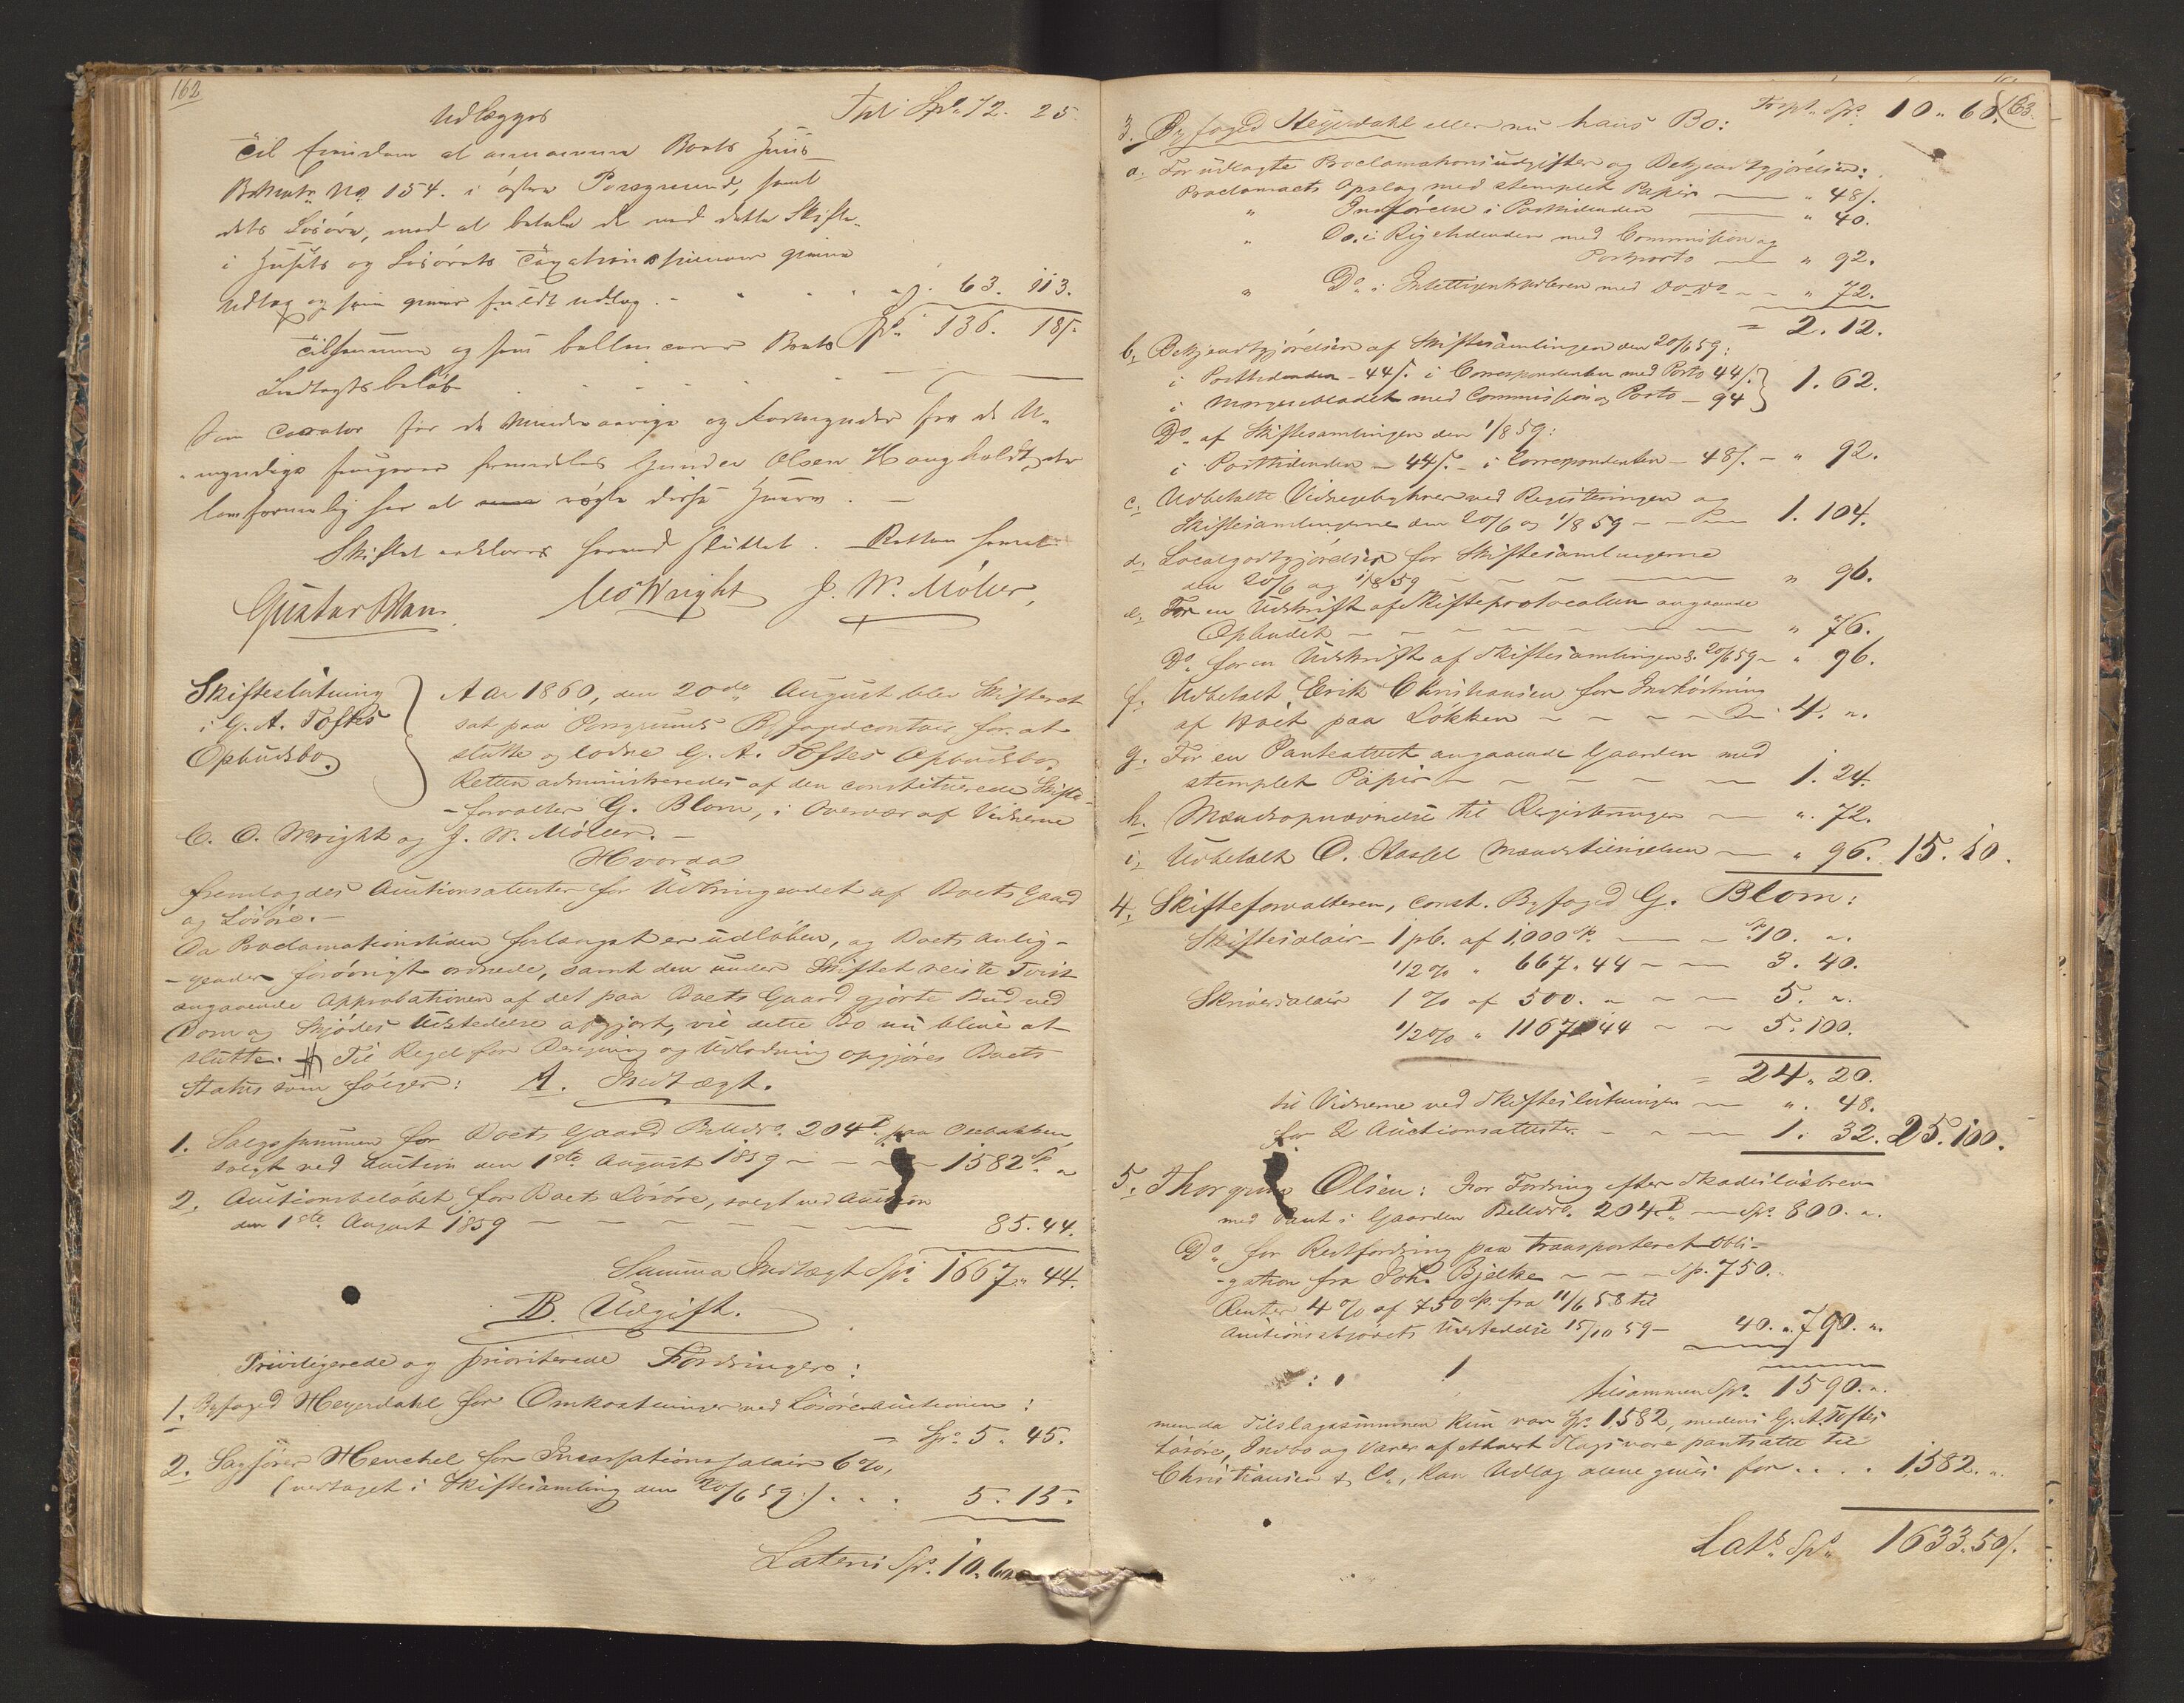 162
Udlægges Tpt Spd. 72. 25
til Eiendom at annamme Boets Huus
Bmatr. No 154. i østre Porsgrund, samt
dets Løsøre, mod at betale de ved dette Skifte
i Husets og Løsørets Taxationssummer givne
Udlæg og som giver fuldt Udlæg. - 63. 113.
Tilsammen og som ballancerer Boets Spd. 136. 18/.
Indtægtsbeløb
Som Curator for de Mindreaarige og Formynder for de U-
-myndige fungerer fremdeles Gunder Olsen Haugholdt, der
lovformelig har at røgte disse Hverv. -
Skiftet erklæres hermed sluttet. Retten hævet
Gustav Blom. C. O. Wright J. W. Möller,
Skifteslutning
i G. A. Toftes
Opbudsbo.
Aar 1860, den 20de August blev Skifteret
sat paa Porsgrunds Byfogedcontoir for at
slutte og lodne G. A. Toftes Opbudsbo.
Retten administreredes af den constituerede Skifte-
-forvalter G. Blom, i Overvær af Vidnerne
C. O. Wright og J. W. Möller. -
Hvorda
fremlagdes Auctionsattester for Udbringendet af Boets Gaard
og Løsøre. -
Da Proclamationstiden forlængst er udløben, og Boets Anlig-
-gender forøvrigt ordnede, samt den under Skiftet reiste Tvist
angaaende Approbationen af det paa Boets Gaard gjorte Bud ved
Dom og Skjødes Udstedelse afgjort, vil dette Bo nu blive at
slutte. Til Regel for Deligning og Udlodning opgjøres Boets
Status som følger: A. Indtægt.
1. Salgssummen for Boets Gaard Bmatr. 204 B paa Osebakken,
solgt ved Auction den 1ste August 1859 - - - 1582 Sp. "
2. Auctionsbeløbet for Boets Løsøre, solgt ved Auction
den 1ste August 1859 - - - - - 85. 44.
Summa Indtægt Spd. 1667 " 44.
B. Udgift.
Privilegerede og prioriterede Fordringer:
1. Byfoged Heyerdahl for Omkostninger ved Løsøreauctionen:
- Spd. 5 " 45.
2. Sagfører Henchel for Incassationssalair 6%,
(vedtaget i Skiftesamling den 20/6 59:) . . . 5. 15.
Lateris Spd. 10. 60
163.
Trspt. Spd. 10 " 60.
3. Byfoged Heyerdahl eller nu hans Bo:
a. For udlagte Proclamationsudgifter og Bekjendtgjørelser:
Proclamaets Opslag med stemplet Papir - " 48/.
" Indførelse i Posttidenden - " 40.
" Do. i Rigstidenden med Commission og
Postporto - " 92.
" Do. i Intelligentssedlerne med Do Do - - " 72.
= 2. 12.
b, Bekjendtgjørelsen af Skiftesamlingen den 20/6 59:
i Posttidenden - 44/. i Correspondenten med Porto 44/.
i Morgenbladet med Commission og Porto - 94 } 1. 62.
Do. af Skiftesamlingen den 1/8 59:
i Posttidenden - 44/. - i Correspondenten - 48/. - " 92.
c, Udbetalte Vidnegebyhrer ved Registeringen og
Skiftesamlingerne den 20/6 og 1/8 59 - - 1. 104.
d, Localgodtgjørelsen for Skiftesamlingerne
den 20/6 og 1/8 59 - - - " 96.
e, For en Udskrift af Skifteprotocollen angaaende
Opbudet - - - - - - " 76.
Do. for en Udskrift af Skiftesamlingen d. 20/6 59 - " 96.
f. Udbetalt Erik Christiansen for Indkjørning
af Høet paa Løkken - - - - 4. "
g. For en Panteattest angaaende Gaarden med
stemplet Papir - - - - - 1. 24.
h. Mændsopnævnelse til Registeringen - ". 72.
i, Udbetalt O. Hassel Mandstilsigelsen - " 96. 15. 10.
4, Skifteforvalteren, const. Byfoged G. Blom:
Skiftesalair - 1 pC. af 1,000 Sp. - - Sp. 10. "
1/2 % " 667. 44 - - 3. 40.
Skriversalair 1 % af 500. " - - 5. "
1/2 % " 1167 44 - - 5. 100.
= 24. 20.
til Vidnerne ved Skifteslutningen - ". 48.
for 2 Auctionsattester - - - 1. 32. 25. 100.
5, Thorgrim Olsen: For Fordring efter Skadesløsbrev
med Pant i Gaarden Bmatr. 204 B - Spd. 800. "
Do. for Restfordring paa transporteret Obli-
-gation fra Joh. Bjelke - - - Sp. 750. "
Renter 4 % af 750 Sp. fra 11/6 58 til
Auctionsskjødets Udstedelse 15/10 59 - 40. " 790. "
tilsammen Spd. 1590. "
men da Tilslagssummen kun var Spd. 1582, medens G. A. Toftes
Løsøre, Indbo og Varer af ethvert Slags vare pantsatte til
Christiansen & Co., kan Udlæg alene gives for . . . . 1,582. "
Lats. Spd. 1633. 50/.